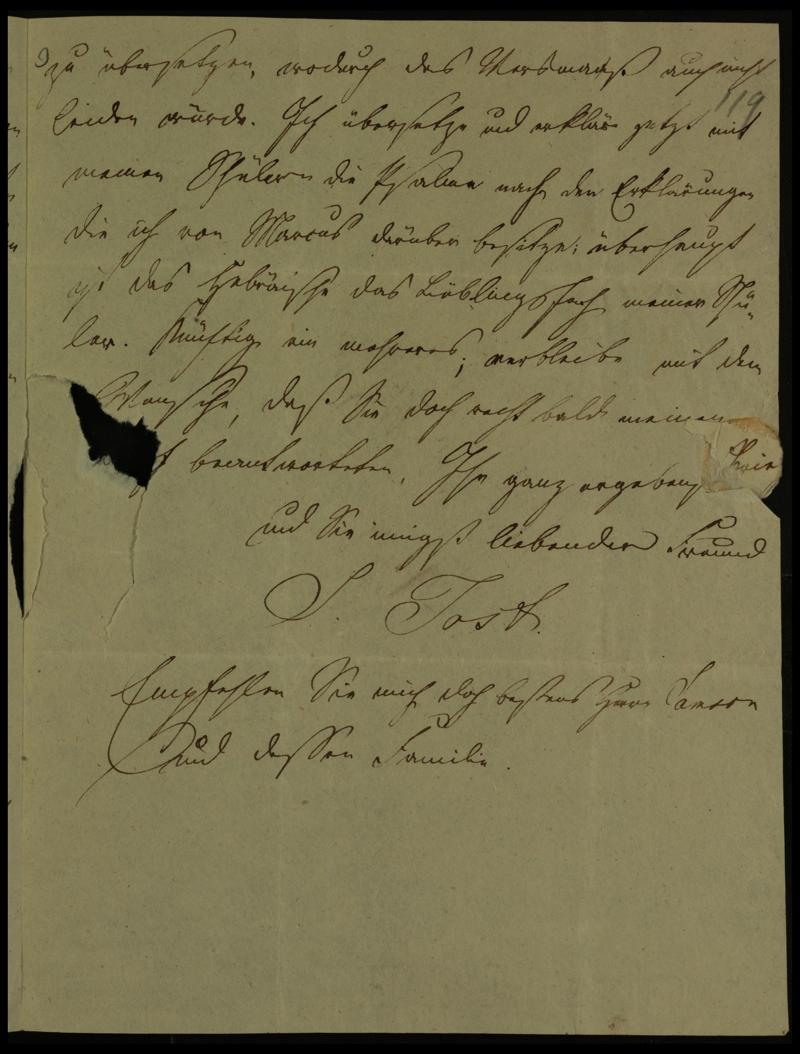 119
zu übersetzen, wodurch das Versmaaß auch nicht
leiden würde. Ich übersetze und erkläre jetzt mit
meinen Schülern die Psalme nach den Erklärungen
die ich von Marcus darüber besitze; überhaupt
ist das Hebräische das Lieblingsfach meiner Schü-
ler. Künftig ein mehreres; verbleibe mit dem
Wunsche, daß Sie doch recht bald meinen
beantworteten, Ihr ganz ergebens
und Sie innigst liebender Freund
S. Jost.
Empfehlen Sie mich doch bestens Herrn
und dessen Familie.